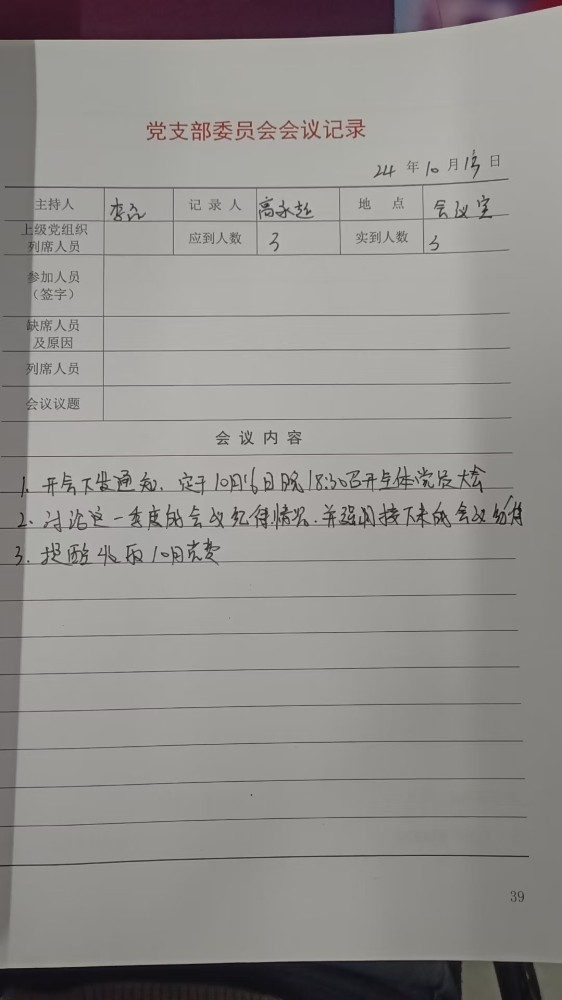 党支部委员会会议记录
24 年 10 月 15 日
主持人 李磊 记录人 高永超 地点 会议室
上级党组织
列席人员 应到人数 3 实到人数 3
参加人员
（签字）
缺席人员
及原因
列席人员
会议议题
会议内容
1. 开会下发通知. 定于10月16日晚18:30召开全体党员大会
2. 讨论这一季度的会议纪律情况. 并强调接下来的会议纪律
3. 提醒收取10月党费
39